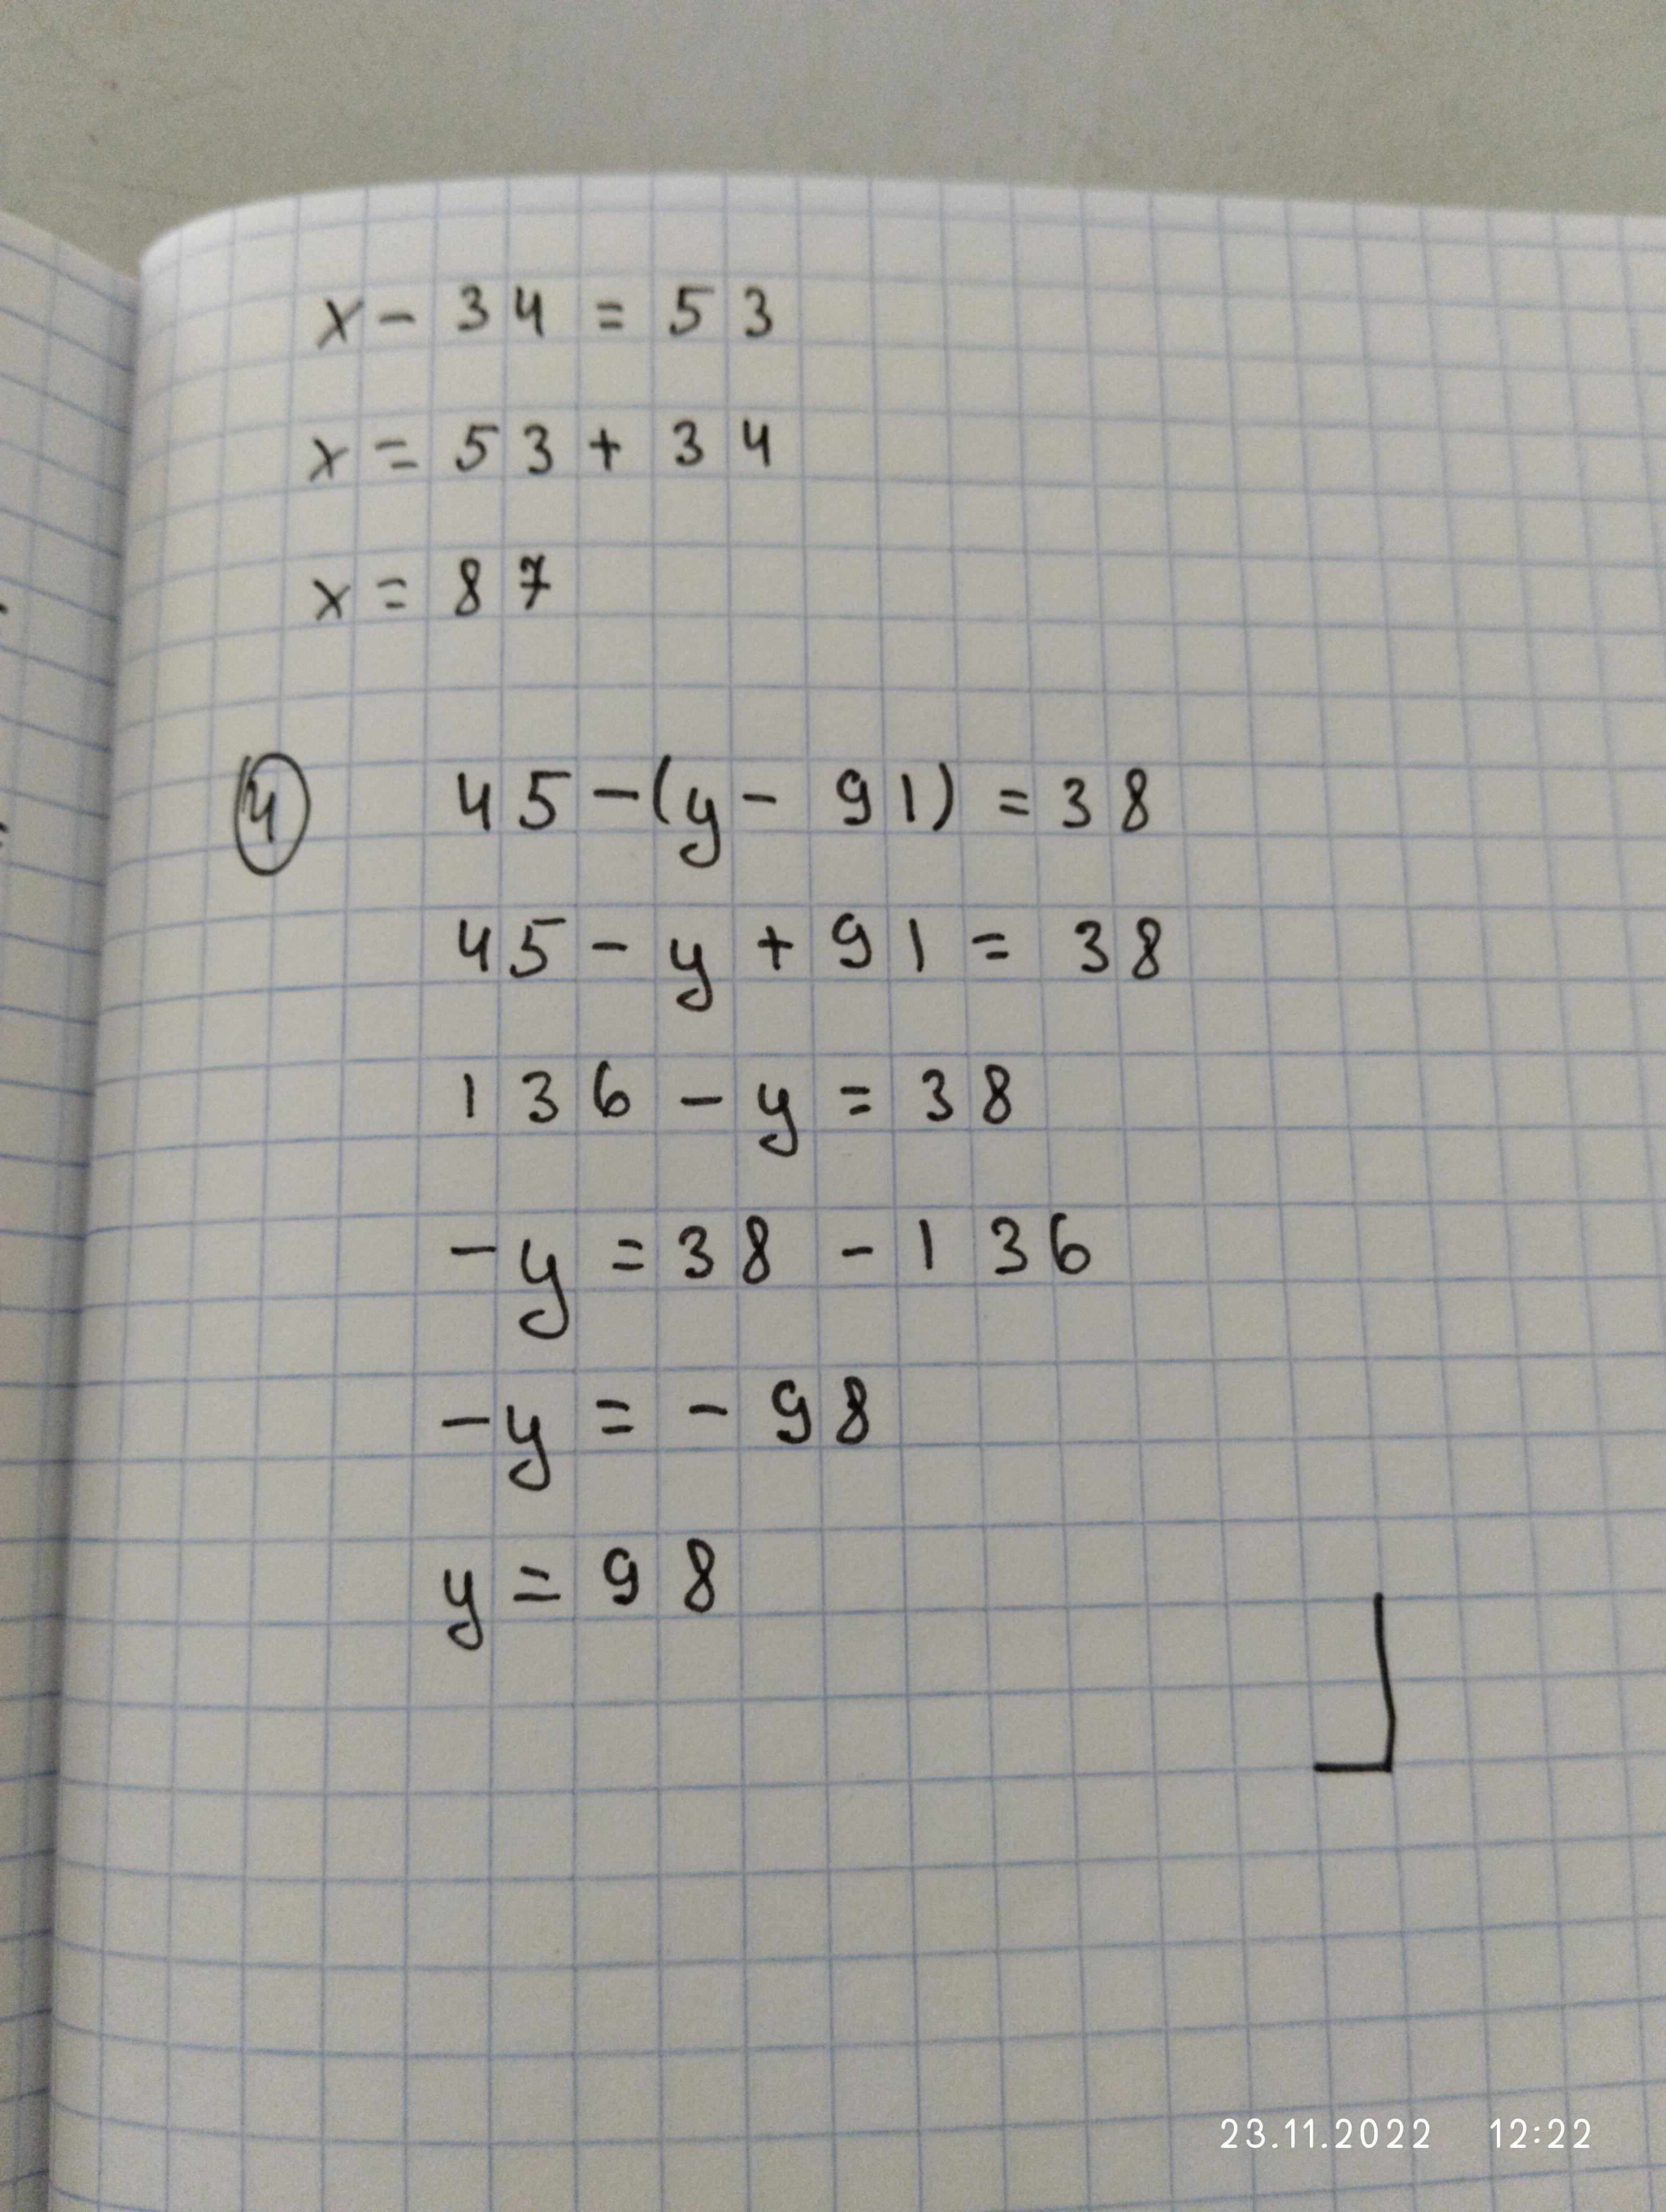 x - 34 = 53
x = 53 + 34
x = 87
4 45 - (y - 91) = 38
45 - y + 91 = 38
136 - y = 38
-y = 38 - 136
-y = - 98
y = 98
23.11.2022 12:22